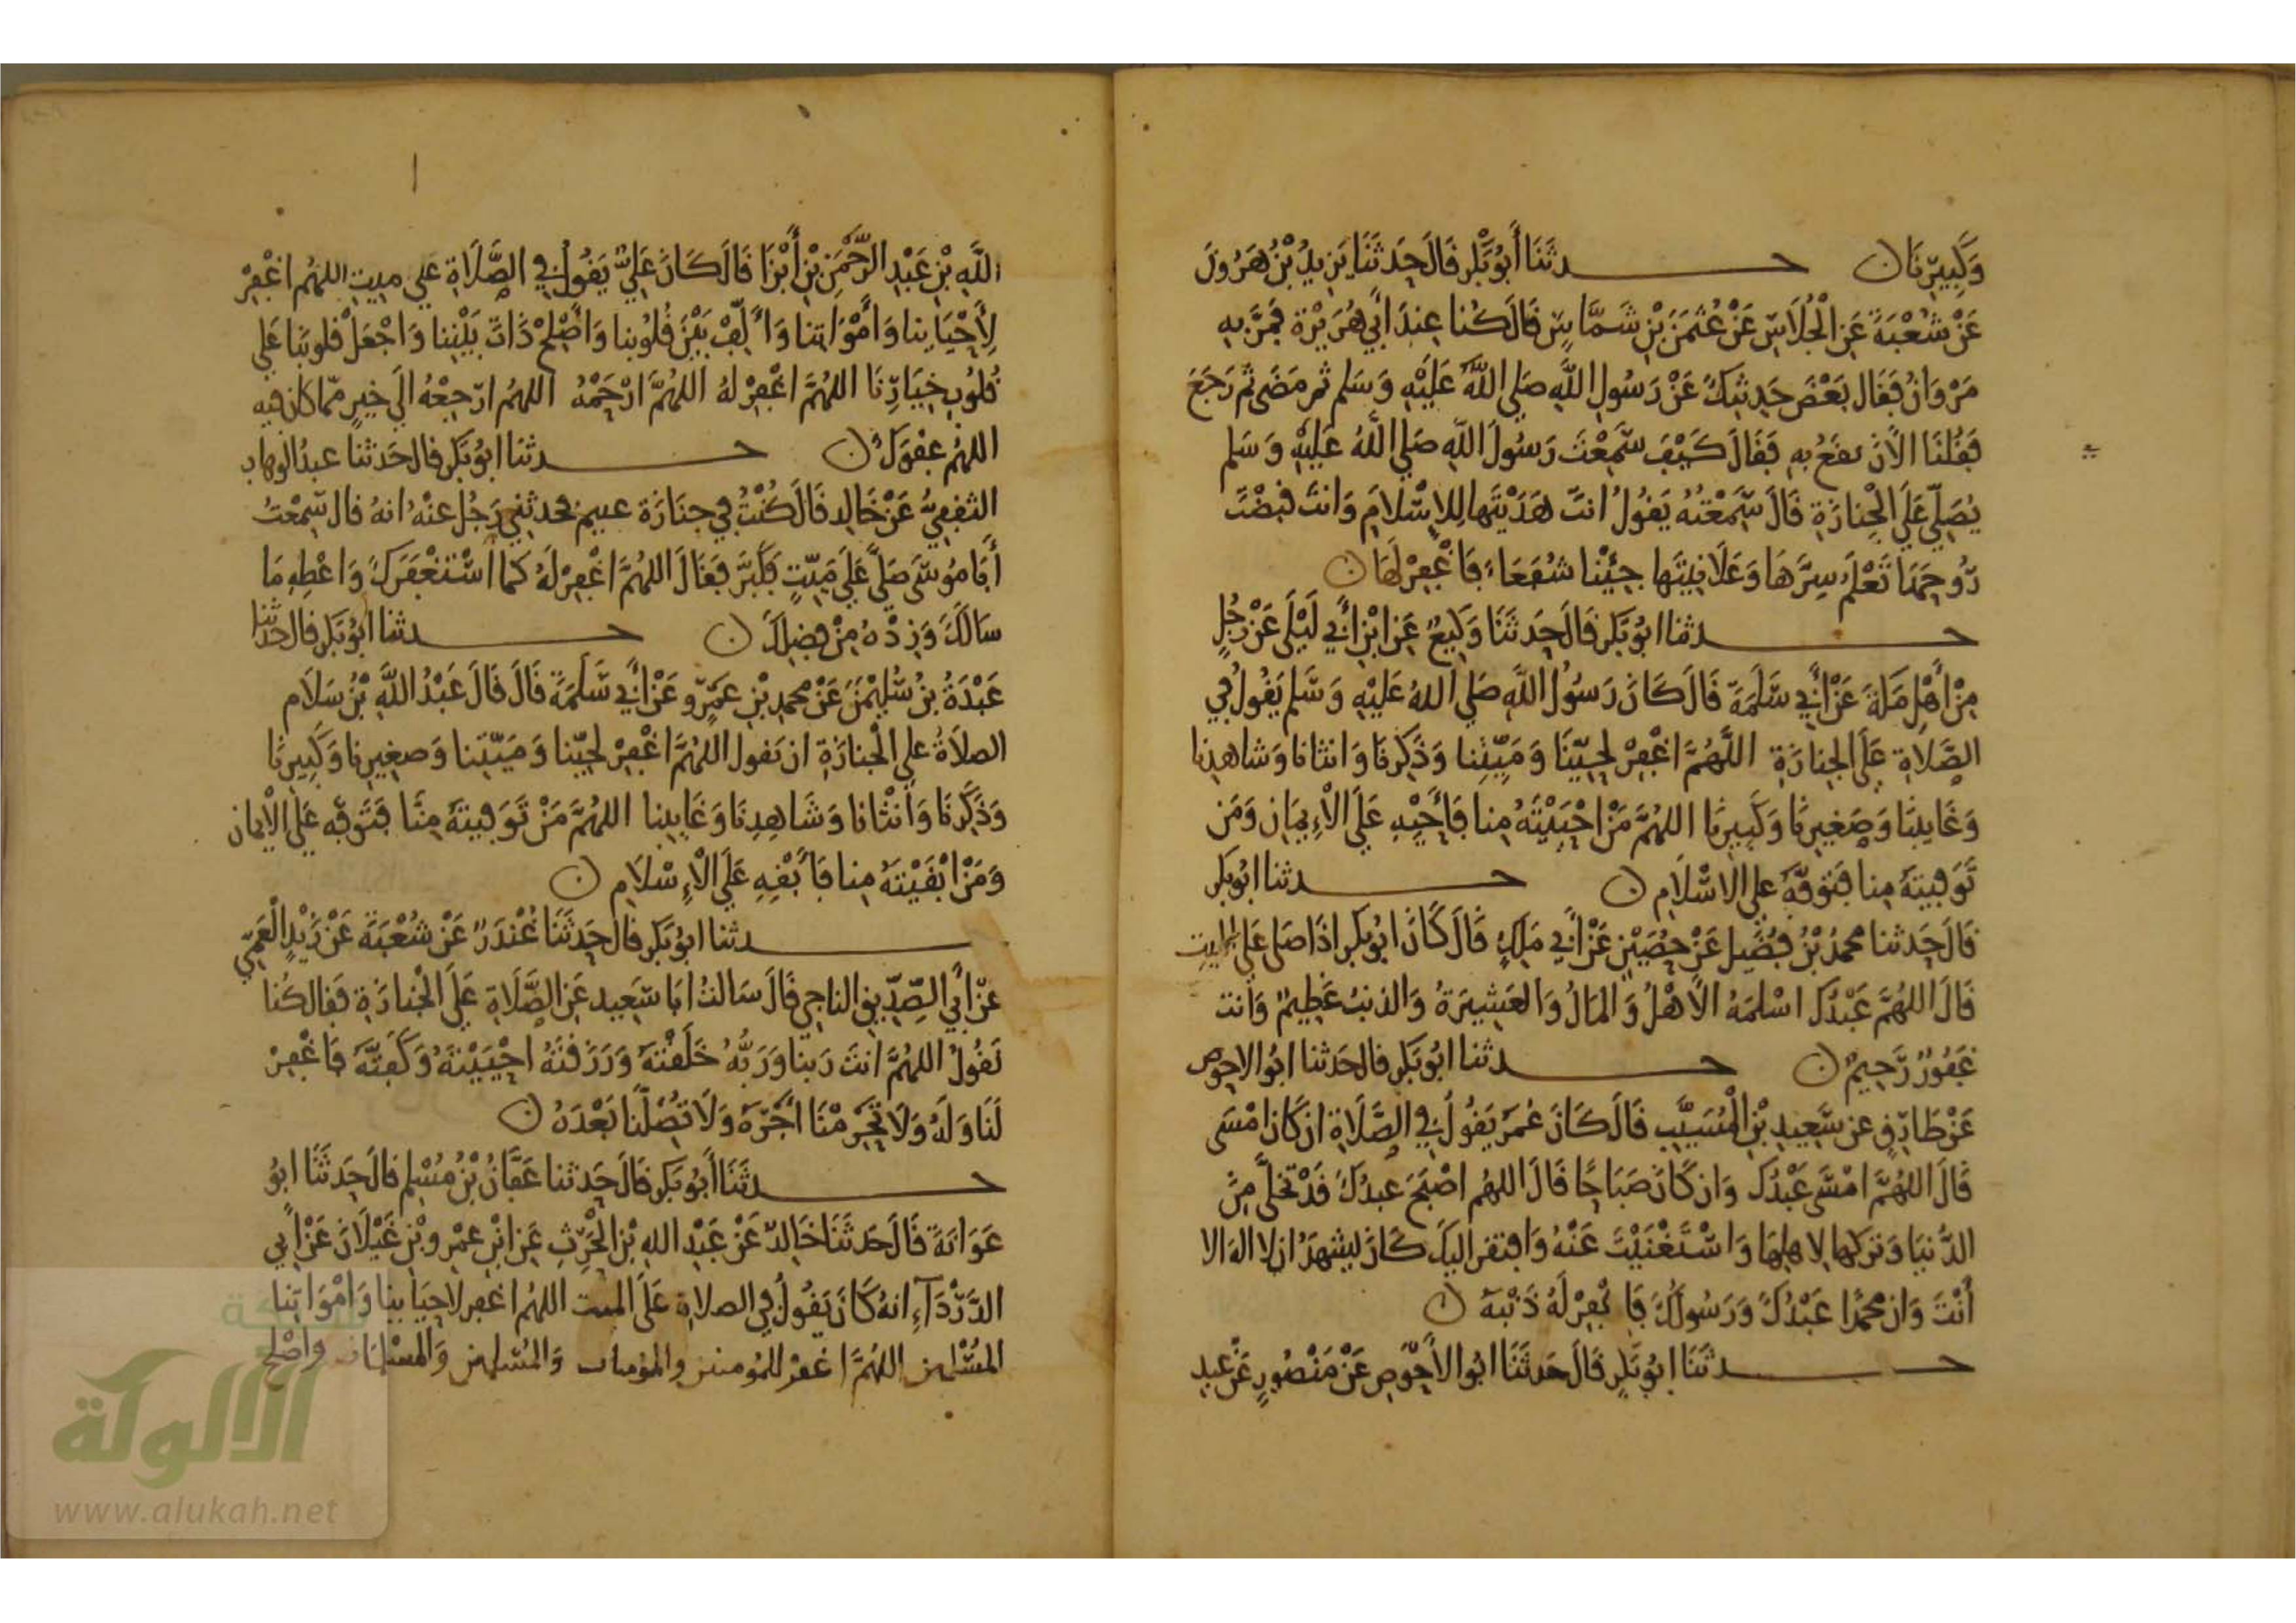 وَكَبِيرِنَا ن حـــدثَنَا أَبُو بَكْرٍ قَالَ حَدثَنَا يَزِيدُ بْنُ هَرُونَ
عَنْ شُعْبَةَ عَنِ الْجُلَاسِ عَنْ عُثمَنَ بْنِ شَمَّاسٍ قَالَ كُنا عِندَ أَبِي هُرَيْرَة فَمَرَّ بِهِ
مَرْوَانُ فَقَال بَعْضَ حَدِيثِكَ عَنْ رَسُولِ اللَّهِ صَلي اللَّهُ عَلَيْهِ وَسَلم ثم مَضَى ثم رَجَعَ
فَقُلْنَا الآنَ يقعُ بِهِ فَقَالَ كَيْفَ سَمِعْتَ رَسُولَ اللَّهِ صَلي اللَّهُ عَلَيْهِ وَسَلم
يُصَلّي عَلَي الْجِنازَةِ قَالَ سَمِعْتُهُ يَقُولُ انتَ هَدَيْتَها لِلاِسْلامِ وَانتَ قَبَضْتَ
رُوحَهَا تَعْلَمُ سِرَّهَا وَعَلَانِيَتَها جِئْنا شُفَعَاءَ فَاغْفِرْ لَهَا ن
حـــدثنا ابُو بَكر قَالَ حَدثَنَا وَكِيعٌ عَنِ ابْنِ أَبِي لَيْلَى عَنْ رَجُلٍ
مِنْ أَهْلِ مَكَةَ عَنْ أَبِي سَلَمَةَ قَالَ كَانَ رَسُولُ اللَّهِ صَلي اللهُ عَلَيْهِ وَسَلم يَقُولُ فِي
الصَّلَاةِ عَلَي الْجِنازَةِ اللَّهُمَّ اغْفِرْ لِحَيِّنَا وَمَيِّتِنا وَذَكَرِنَا وَانثانا وَشاهِدِنا
وَغَايِبِنا وَصَغِيرِنا وَكَبِيرِنا اللهُمَّ مَنْ احْيَيْتَهُ مِنا فَأَحْيِهِ عَلَي الْاِيمَانِ وَمَن
تَوَفيتَهُ مِنا فَتَوَفَّهُ علي الاسْلَامِ ن حـــدثنا ابُو بَكر
قَالَ حَدثنا محمدُ بْنُ فُضَيْلٍ عَنْ حُصَيْنٍ عَنْ أَبِي مَلِكٍ قَالَ كَانَ ابُو بَكر اذَا صَلي عَلَي الميت
قَالَ اللهُمَّ عَبْدُكَ اسْلمَهُ الاَهْلُ وَالمَالُ وَالعَشِيرَةُ وَالذنبُ عَظِيمٌ وَانت
غَفُورٌ رَّحِيمٌ ن حـــدثنا ابُو بَكر قالَ حَدثنا ابُو الاحوص
عَنْ طَارِقٍ عن سَعِيدِ بْنِ الْمُسَيَّبِ قَالَ كَانَ عُمَر يَقُولُ فِي الصَّلَاةِ ان كَانَ امْسَى
قَالَ اللهُمَّ امْسَى عَبْدُكَ وَان كَانَ صَبَاحًا قَالَ اللهُم اصْبَحَ عَبدُكَ قَدْ تخَلَّى مِنَ
الدُّنيَا وَتَرَكَها لاهلِهَا وَاسْتَغْنَيْتَ عَنْهُ وَافتقرَ اليكَ كَانَ يشهَدُ ان لا اله الا
أَنْتَ وَان محمدًا عَبْدُكَ وَرَسُولُكَ فَاغْفِرْ لَهُ ذَنْبَهُ ن
حـــدثَنَا ابُو بَكر قَالَ حَدثَنَا ابُو الأَحْوَصِ عَنْ مَنْصُورٍ عَنْ عَبدِ
اللَّهِ بْنِ عَبْدِ الرَّحْمَنِ بْنِ أَبْزَا قَالَ كَانَ عَلِيٌّ يَقُولُ فِي الصَّلَاةِ عَلي ميتٍ اللهُم اغْفِرْ
لِأَحْيَاينا وَأَمْوَاتِنا وَأَلِّفْ بَيْنَ قُلُوبِنا وَأَصْلِحْ ذَاتَ بَيْنِنا وَاجْعَلْ قُلوبَنا عَلَي
قُلُوبِ خِيَارِنَا اللهُمَّ اغْفِرْ لهُ اللهُمَّ ارْحَمْهُ اللهُم ارْجِعْهُ الَي خَيرٍ مّما كان فيه
اللهُم عفوَكَ ن حـــدثنا ابُو بَكر قالَ حَدثنا عبدُ الوهاب
الثقفِيُّ عَنْ خَالِدٍ قَالَ كُنْتُ فِي جِنَازَة غنيم فحدثنِي رَجُل عنْهُ انهُ قال سَمِعْتُ
أَبَا مُوسَى صَلَّى عَلَي مَيّتٍ فَكَبَّرَ فَقَالَ اللهُمَّ اغْفِرْ لَهُ كما اسْتَغْفَرَكَ وَاعْطِهِ مَا
سَالَكَ وَزِدْهُ مِنْ فَضلِكَ ن حـــدثنا ابُو بَكر قالَ حَدثنا
عَبْدَةُ بنُ سُلَيْمَنَ عَنْ محمدِ بْنِ عَمْرٍو عَنْ أَبِي سَلَمَةَ قَالَ قَالَ عَبْدُ اللَّهِ بْنُ سَلَام
الصلاَةُ علي الْجنازَةِ ان تَقول اللهُمَّ اغْفِرْ لحَيّنا وَمَيّتِنا وَصغِيرِنا وَكَبِيرِنَا
وَذَكَرِنَا وَانْثانا وَشَاهِدِنَا وَغَايِبِنا اللهُمَّ مَنْ تَوَفيتَهُ مِنَّا فَتَوَفّهِ عَلَي الْايمان
وَمَنْ ابْقَيْتَهُ مِنا فَأَبْقِهِ عَلَي الْاِسْلَامِ ن
حـــدثنا ابُو بَكر قَالَ حَدثَنَا غُنْدَرٌ عَنْ شُعْبَةَ عَنْ زَيْدٍ الْعَمِّي
عَنْ أَبِي الصِّدِّيقِ الناجِي قَالَ سَالتُ ابَا سَعِيد عَنِ الصَّلَاةِ عَلَي الْجنازَةِ فَقَال كُنا
نَقُولُ اللهُمَّ انتَ رَبنا وَرَبُّهُ خَلَقْتَهُ وَرَزَقْتَهُ احْيَيْتَهُ وَكَفَيْتَهُ فَاغْفِرْ
لَنَا وَلَهُ وَلَا تَحْرِمْنَا أَجْرَهُ وَلَا تُضِلَّنا بَعْدَهُ ن
حـــدثَنَا أَبُو بَكر قَالَ حَدثنا عَفَّانُ بْنُ مُسْلِمٍ قَالَ حَدثَنَا ابُو
عَوَانَةَ قَالَ حَدثَنَا خَالِدٌ عَنْ عَبْدِ اللهِ بْنِ الْحَرِثِ عَنِ ابْنِ عَمْرِو بْنِ غَيْلَانَ عَنْ أَبِي
الدَّرْدَآءِ انهُ كَانَ يَقُولُ فِي الصلاةِ عَلَى الميت اللهُم اغفر لاحيَاينا وَامْوَاتِنا
المُسْلمِين اللهُمَّ اغفرْ للمُومنين والمؤمنات وَالمُسْلمِين وَالمسْلِمَات وَاصْلِح
شبكة
الألوكة
www.alukah.net